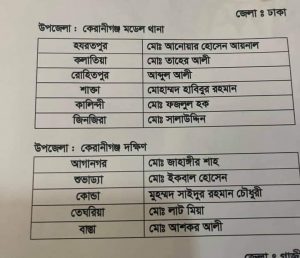 জেলা ঃ ঢাকা
উপজেলা : কেরানীগঞ্জ মডেল থানা
হযরতপুর মোঃ আনোয়ার হোসেন আয়নাল
কলাতিয়া মোঃ তাহের আলী
রোহিতপুর আব্দুল আলী
শাক্তা মোহাম্মদ হাবিবুর রহমান
কালিন্দী মোঃ ফজলুল হক
জিনজিরা মোঃ সালাউদ্দিন
উপজেলা : কেরানীগঞ্জ দক্ষিণ
আগানগর মোঃ জাহাঙ্গীর শাহ
শুভাড্যা মোঃ ইকবাল হোসেন
কোন্ডা মুহম্মদ সাইদুর রহমান চৌধুরী
তেঘরিয়া মোঃ লাট মিয়া
বাস্তা মোঃ আশকর আলী
জেলা ঃ